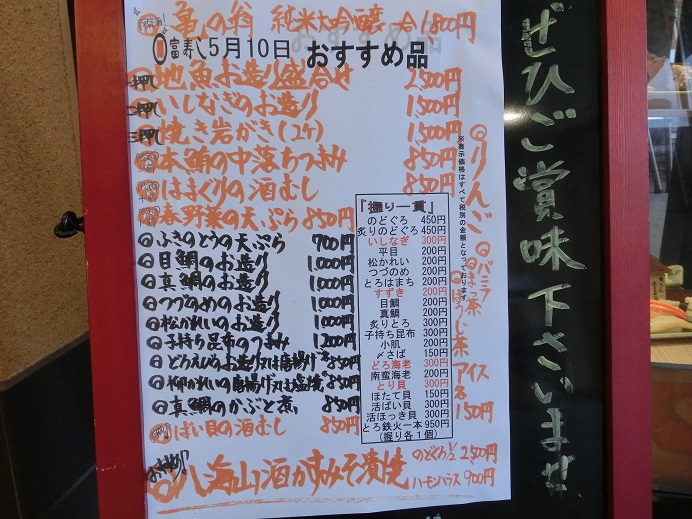 亀の翁 純米大吟醸 一合1,800円
富寿し5月10日 おすすめ品
一押し 地魚お造り盛合せ 2,500円
二押し いしなぎのお造り 1,500円
三押し 焼き岩がき(1ヶ) 1,500円
本鮪の中落ちつまみ 850円
はまぐりの酒むし 850円
春野菜の天ぷら 850円
ふきのとうの天ぷら 700円
目鯛のお造り 1,000円
真鯛のお造り 1,000円
つづのめのお造り 1,000円
松かれいのお造り 1,000円
子持ち昆布のつまみ 1,200円
どろえびのお造り又は唐揚げ 850円
柳かれいの唐揚げ又は塩焼 850円
真鯛のかぶと煮 850円
ばい貝の酒むし 850円
八海山酒かすみそ漬焼
のどぐろ1/2 2,500円
ハーモンハラス 900円
『握り一貫』
のどぐろ 450円
炙りのどぐろ 450円
いしなぎ 300円
平目 200円
松かれい 200円
つづのめ 200円
とろはまち 200円
すずき 200円
目鯛 200円
真鯛 200円
炙りとろ 300円
子持ち昆布 300円
小肌 200円
〆さば 150円
どろ海老 300円
南蛮海老 200円
とり貝 300円
ほたて貝 150円
活ばい貝 300円
活ほっき貝 300円
とろ鉄火一本 950円
(握り各1個)
※表示価格はすべて税別の金額となっております。
りんご
バニラ
まっ茶
ほうじ茶
アイス
各150円
ぜひご賞味下さいませ